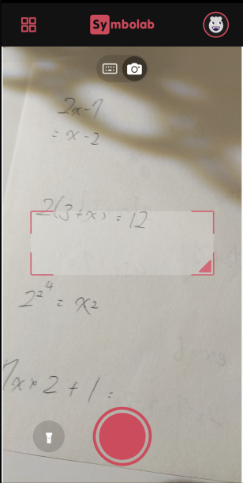 Symbolab
2x-7
= x-2
2(3+x) = 12
2²⁴ = x²
7x×2+1=